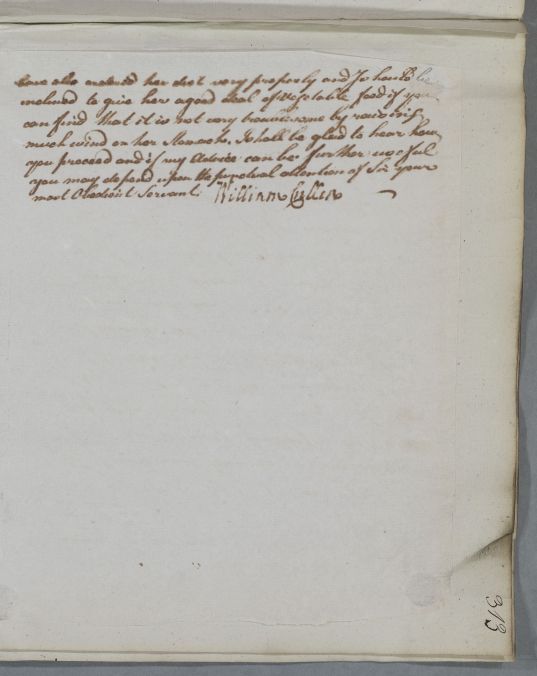 have also ordered her diet very properly and I should be
inclined to give her a good deal of vegetable food if you
can find that it is not very troublesome by raising
much wind on her Stomach. I shall be glad to hear how
you proceed and if my Advice can be further useful
you may depend upon the punctual attention of Sir your
most Obedient Servant William Cullen
313